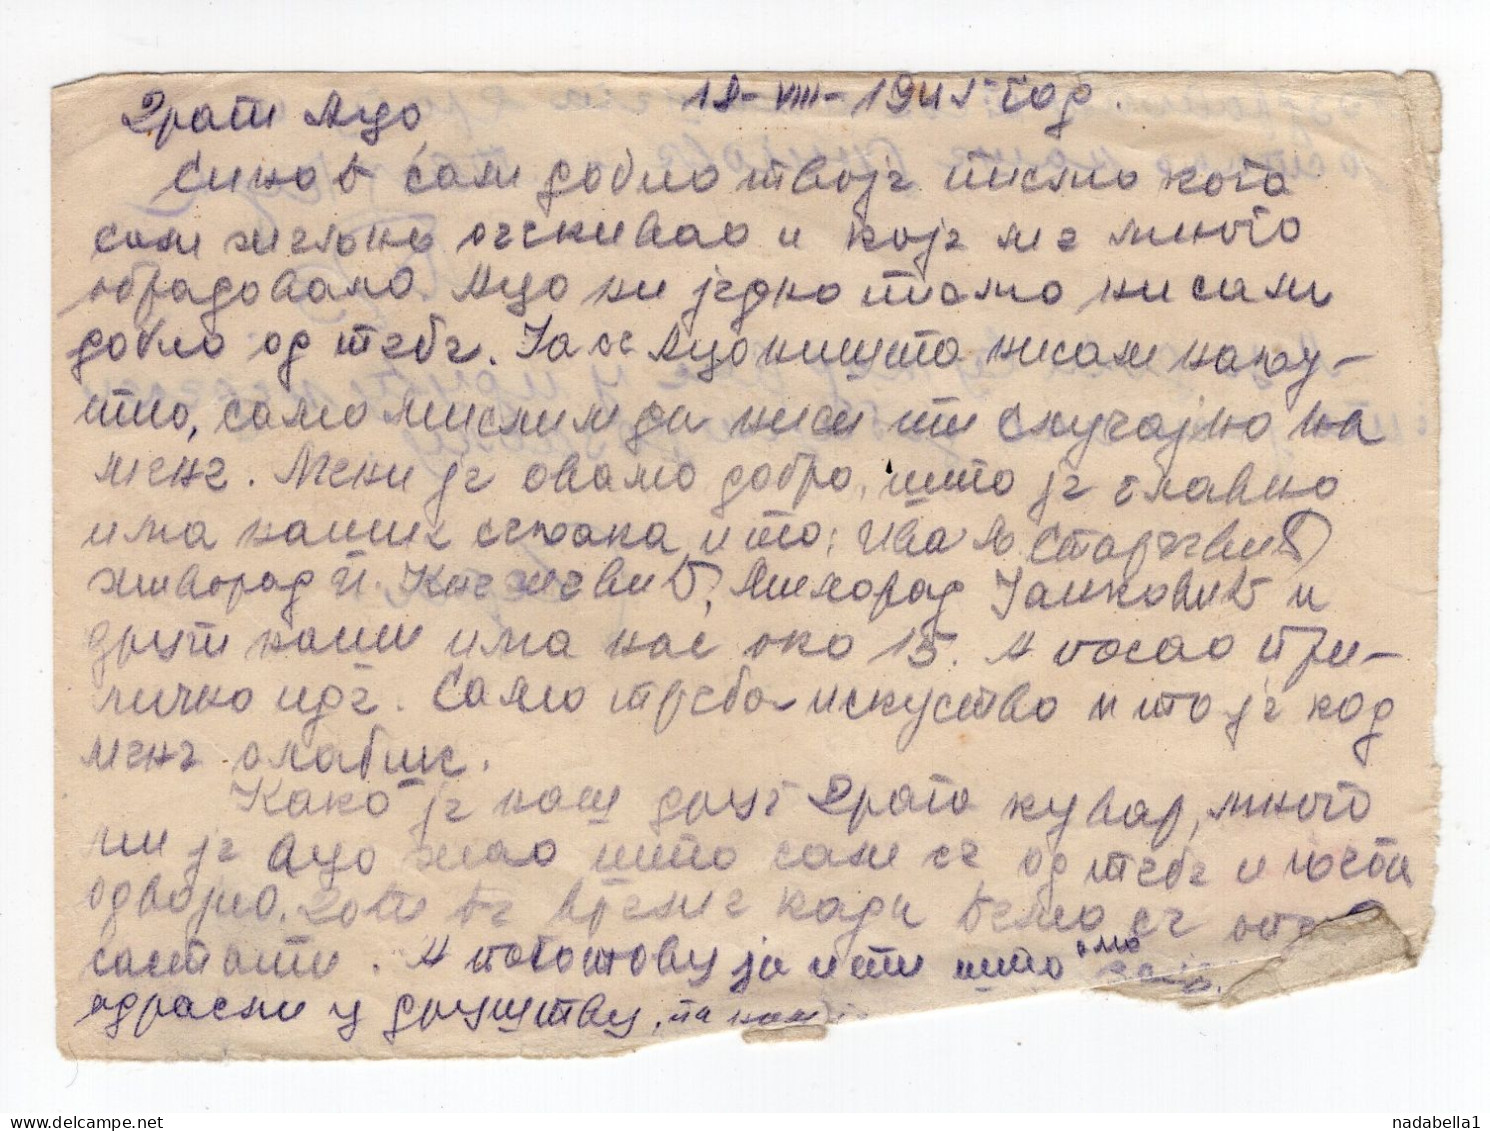 18-VIII-1945 год.
Драги Ацо
Синоћ сам добио твоје писмо кога
сам жељно очекивао и које ме много
обрадовало. Ацо ни једно писмо нисам
добио од тебе. Ја се Ацо ништа нисам нажу-
тио, само мислим да ниси ти случајно на
мене. Мени је овамо добро, што је главно
има наших сељака и то: Иван Старчевић
Живорад И. Кнежевић, Милорад Јанковић и
други наши има нас око 15. А посао при-
лично иде. Само треба искуство и то је код
мене слабије.
Како је наш друг Драго кувар, много
ми је Ацо жао што сам се од тебе и
одвојио. Доћи ће време кади ћемо се опет
састати. А поготову ја и ти што смо
одрасли у друштву, па нам
www.delcampe.net
nadabella1